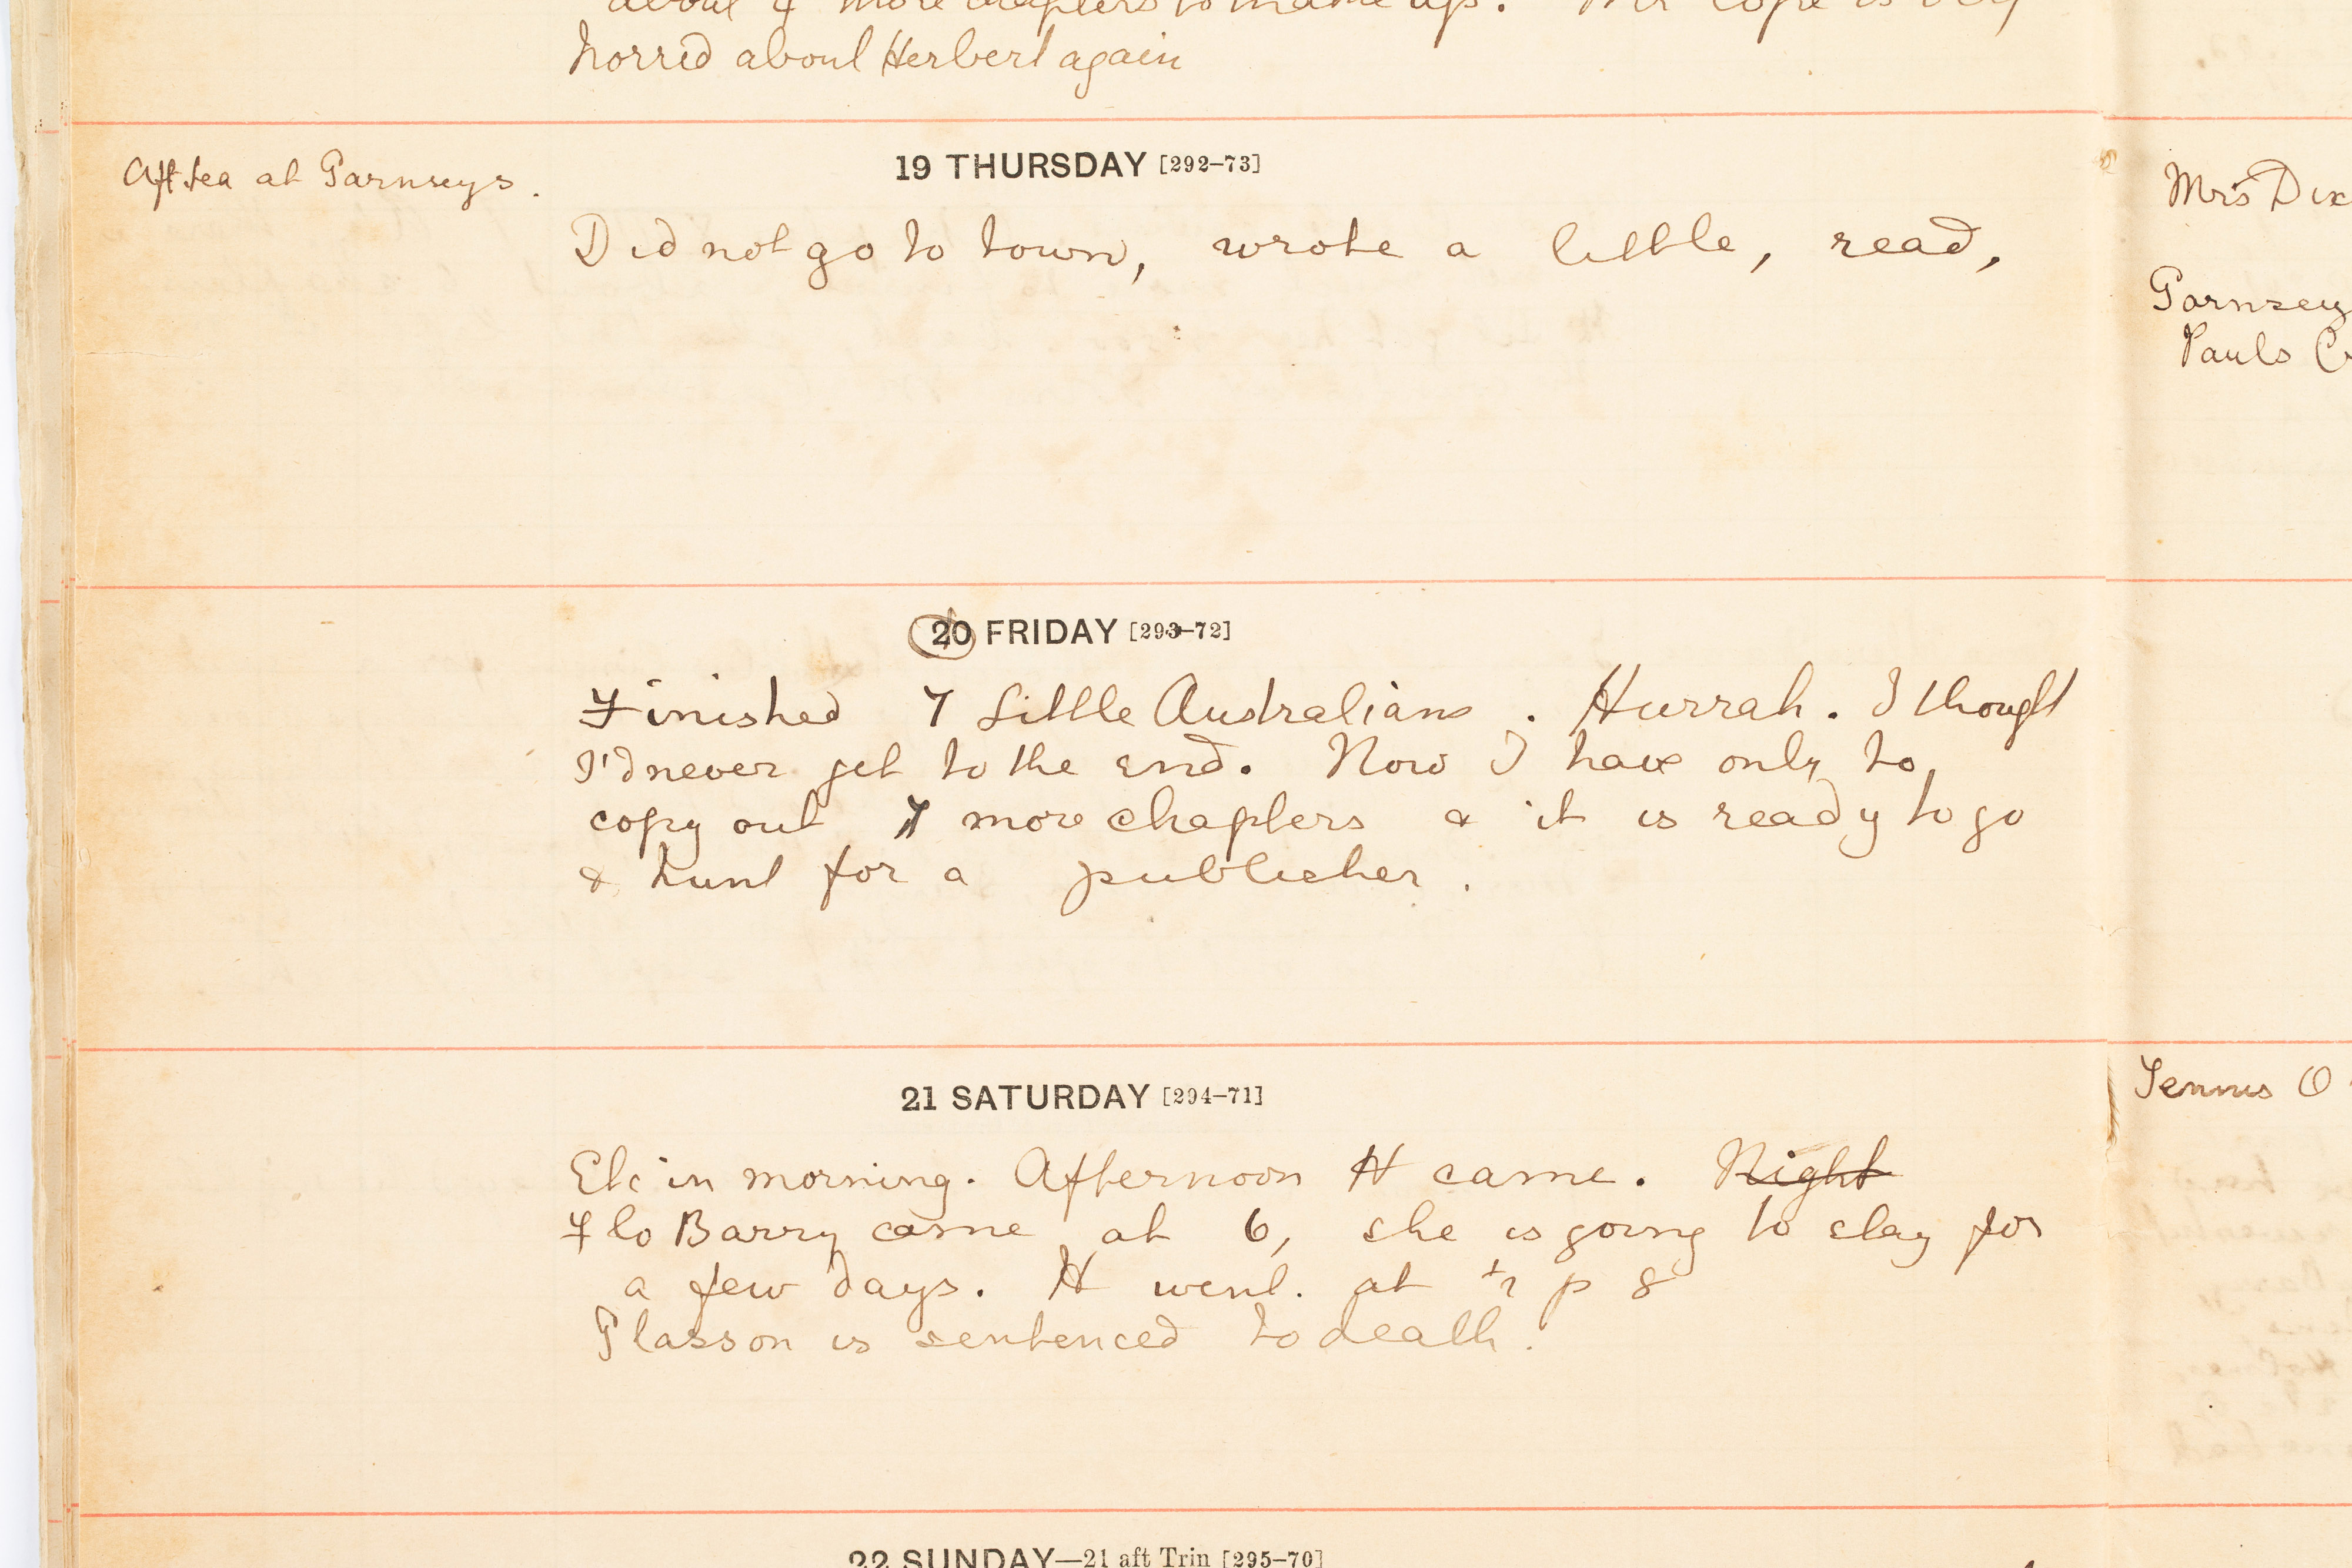 about 4 more chapters to make up. Mr Cope is very
horrid about Herbert again
19 THURSDAY [292–73]
Aft tea at Garnseys.
Did not go to town, wrote a little, read,
20 FRIDAY [293–72]
Finished 7 Little Australians. Hurrah. I thought
I'd never get to the end. Now I have only to
copy out 7 more chapters & it is ready to go
& hunt for a publisher.
21 SATURDAY [294–71]
Etc in morning. Afternoon H came. Night
Flo Barry came at 6, she is going to stay for
a few days. H went. at ½ p 8
Glasson is sentenced to death.
22 SUNDAY—21 aft Trin [295–70]
Mrs Dix
Garnsey
Pauls C
Tennis O